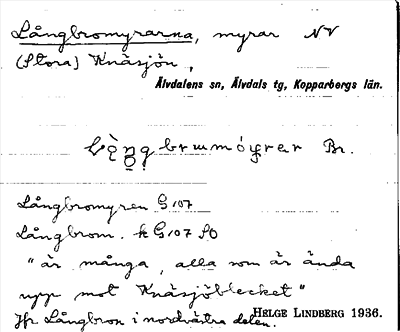 Långbromyrarna, myrar NV
(Stora) Knäsjön,
Älvdalens sn, Älvdals tg, Kopparbergs län.
Br.
Långbromyren G 107
Långbrom. k G 107 SO
"är många, alla som är ända
upp mot Knäsjöblecket"
HELGE LINDBERG 1936.
Jfr Långbron i nordvästra delen.